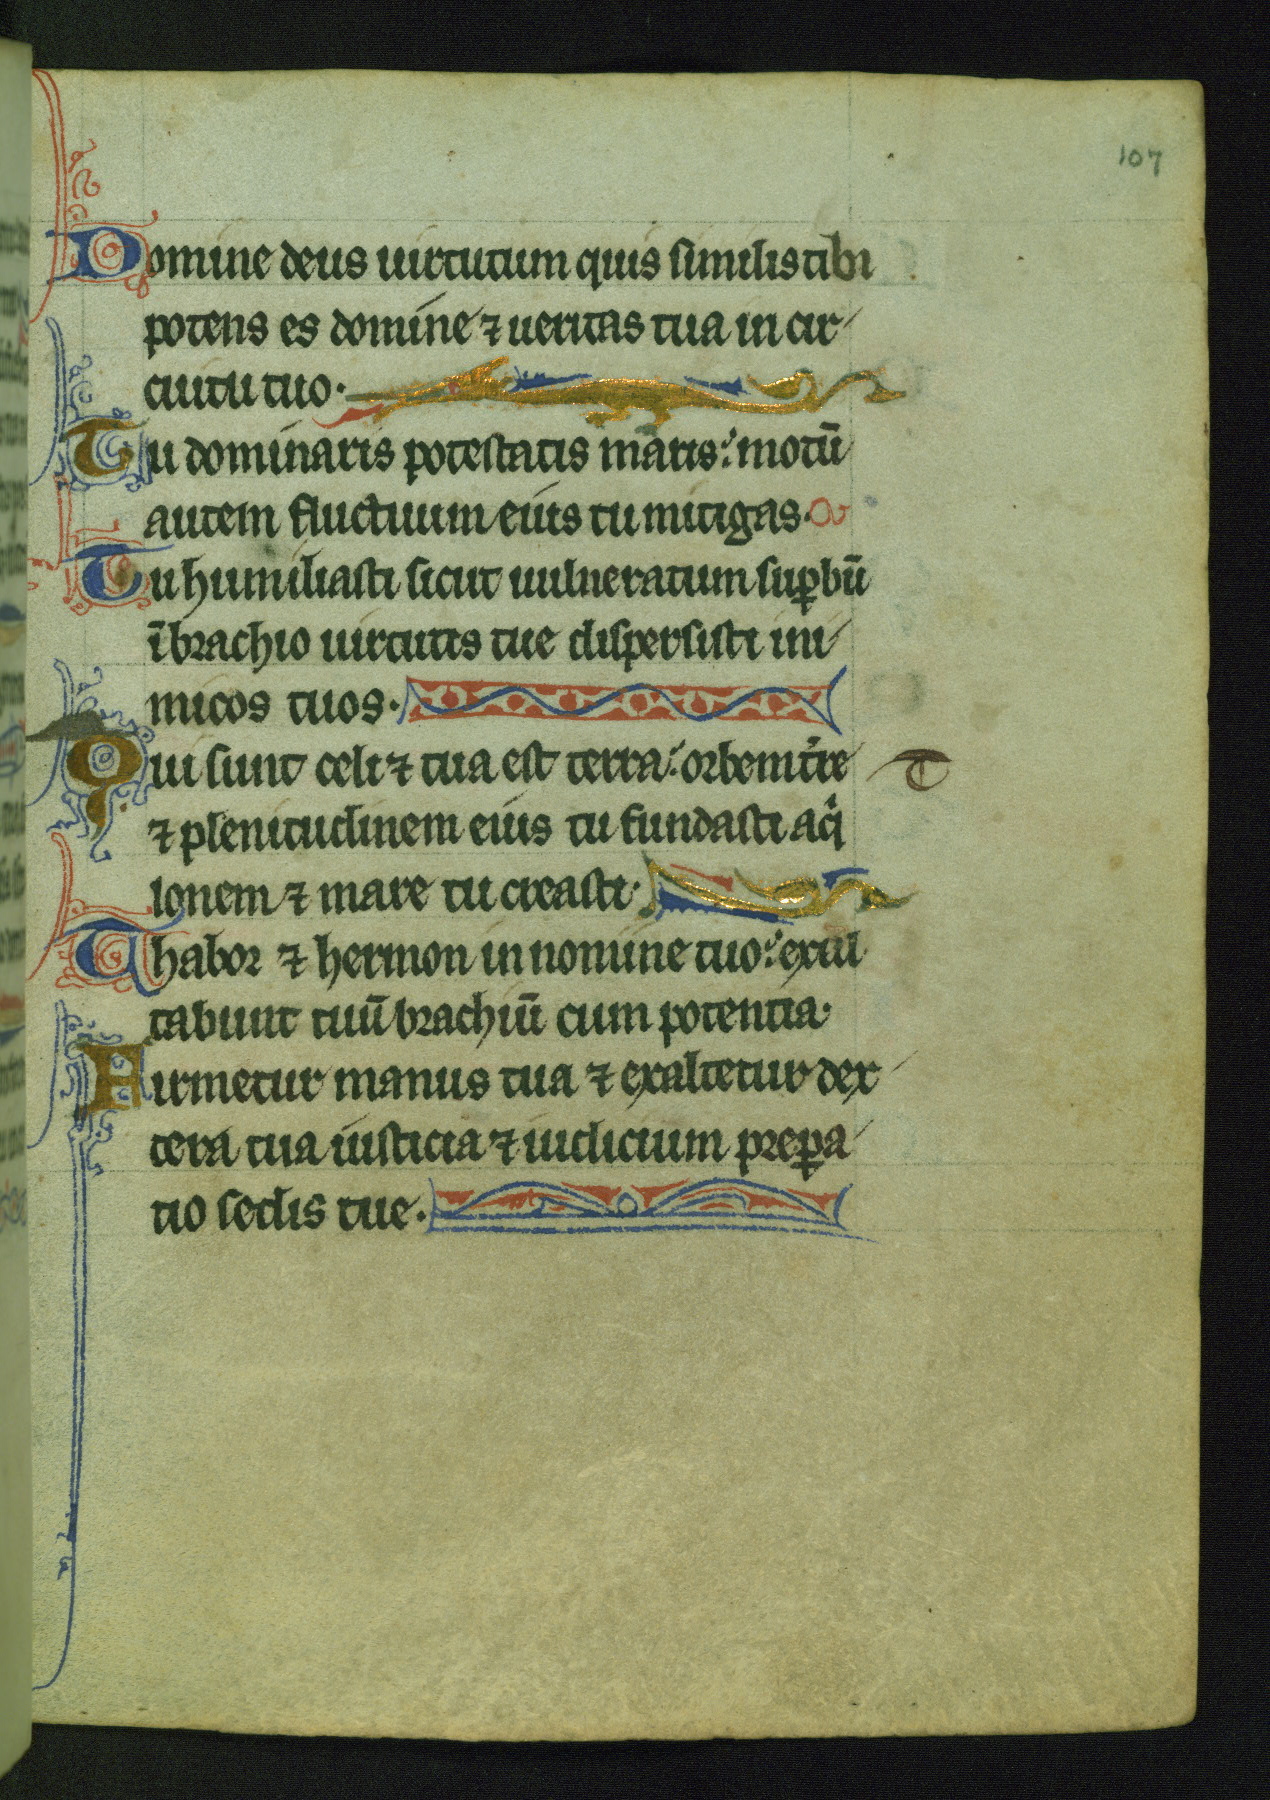 107
Domine deus uirtutum quis similis tibi
potens es domine ⁊ ueritas tua in cir
cuitu tuo·
Tu dominaris potestatis maris: motū
autem fluctuum eius tu mitigas·
Tu humiliasti sicut uulneratum suꝑbū
ī brachio uirtutis tue dispersisti ini
micos tuos·
Qui sunt celi ⁊ tua est terra: orbem t̾re
⁊ plenitudinem eius tu fundasti aq̇
lonem ⁊ mare tu creasti·
Thabor ⁊ hermon in nomine tuo: exul
tabunt tuū brachiū cum potentia·
Firmetur manus tua ⁊ exaltetur dex
tera tua iusticia ⁊ iudicium preꝑa
tio sedis tue·